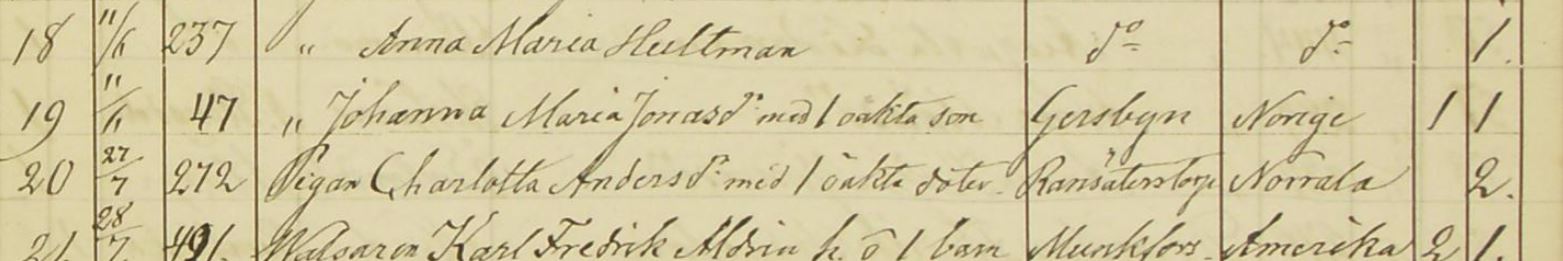 18 11/6 237 " Anna Maria Hultman do do 1.
19 11/6 47 " Johanna Maria Jonasdr med 1 oäkta son Gersbyn Norige 1 1
20 27/7 272 Pigan Charlotta Andersdr med 1 oäkta doter Ransäterstorp Norrala 2.
21 28/7 491. Valsaren Karl Fredrik Aldrin h. o 1 barn Munkfors Amerika 2 1.